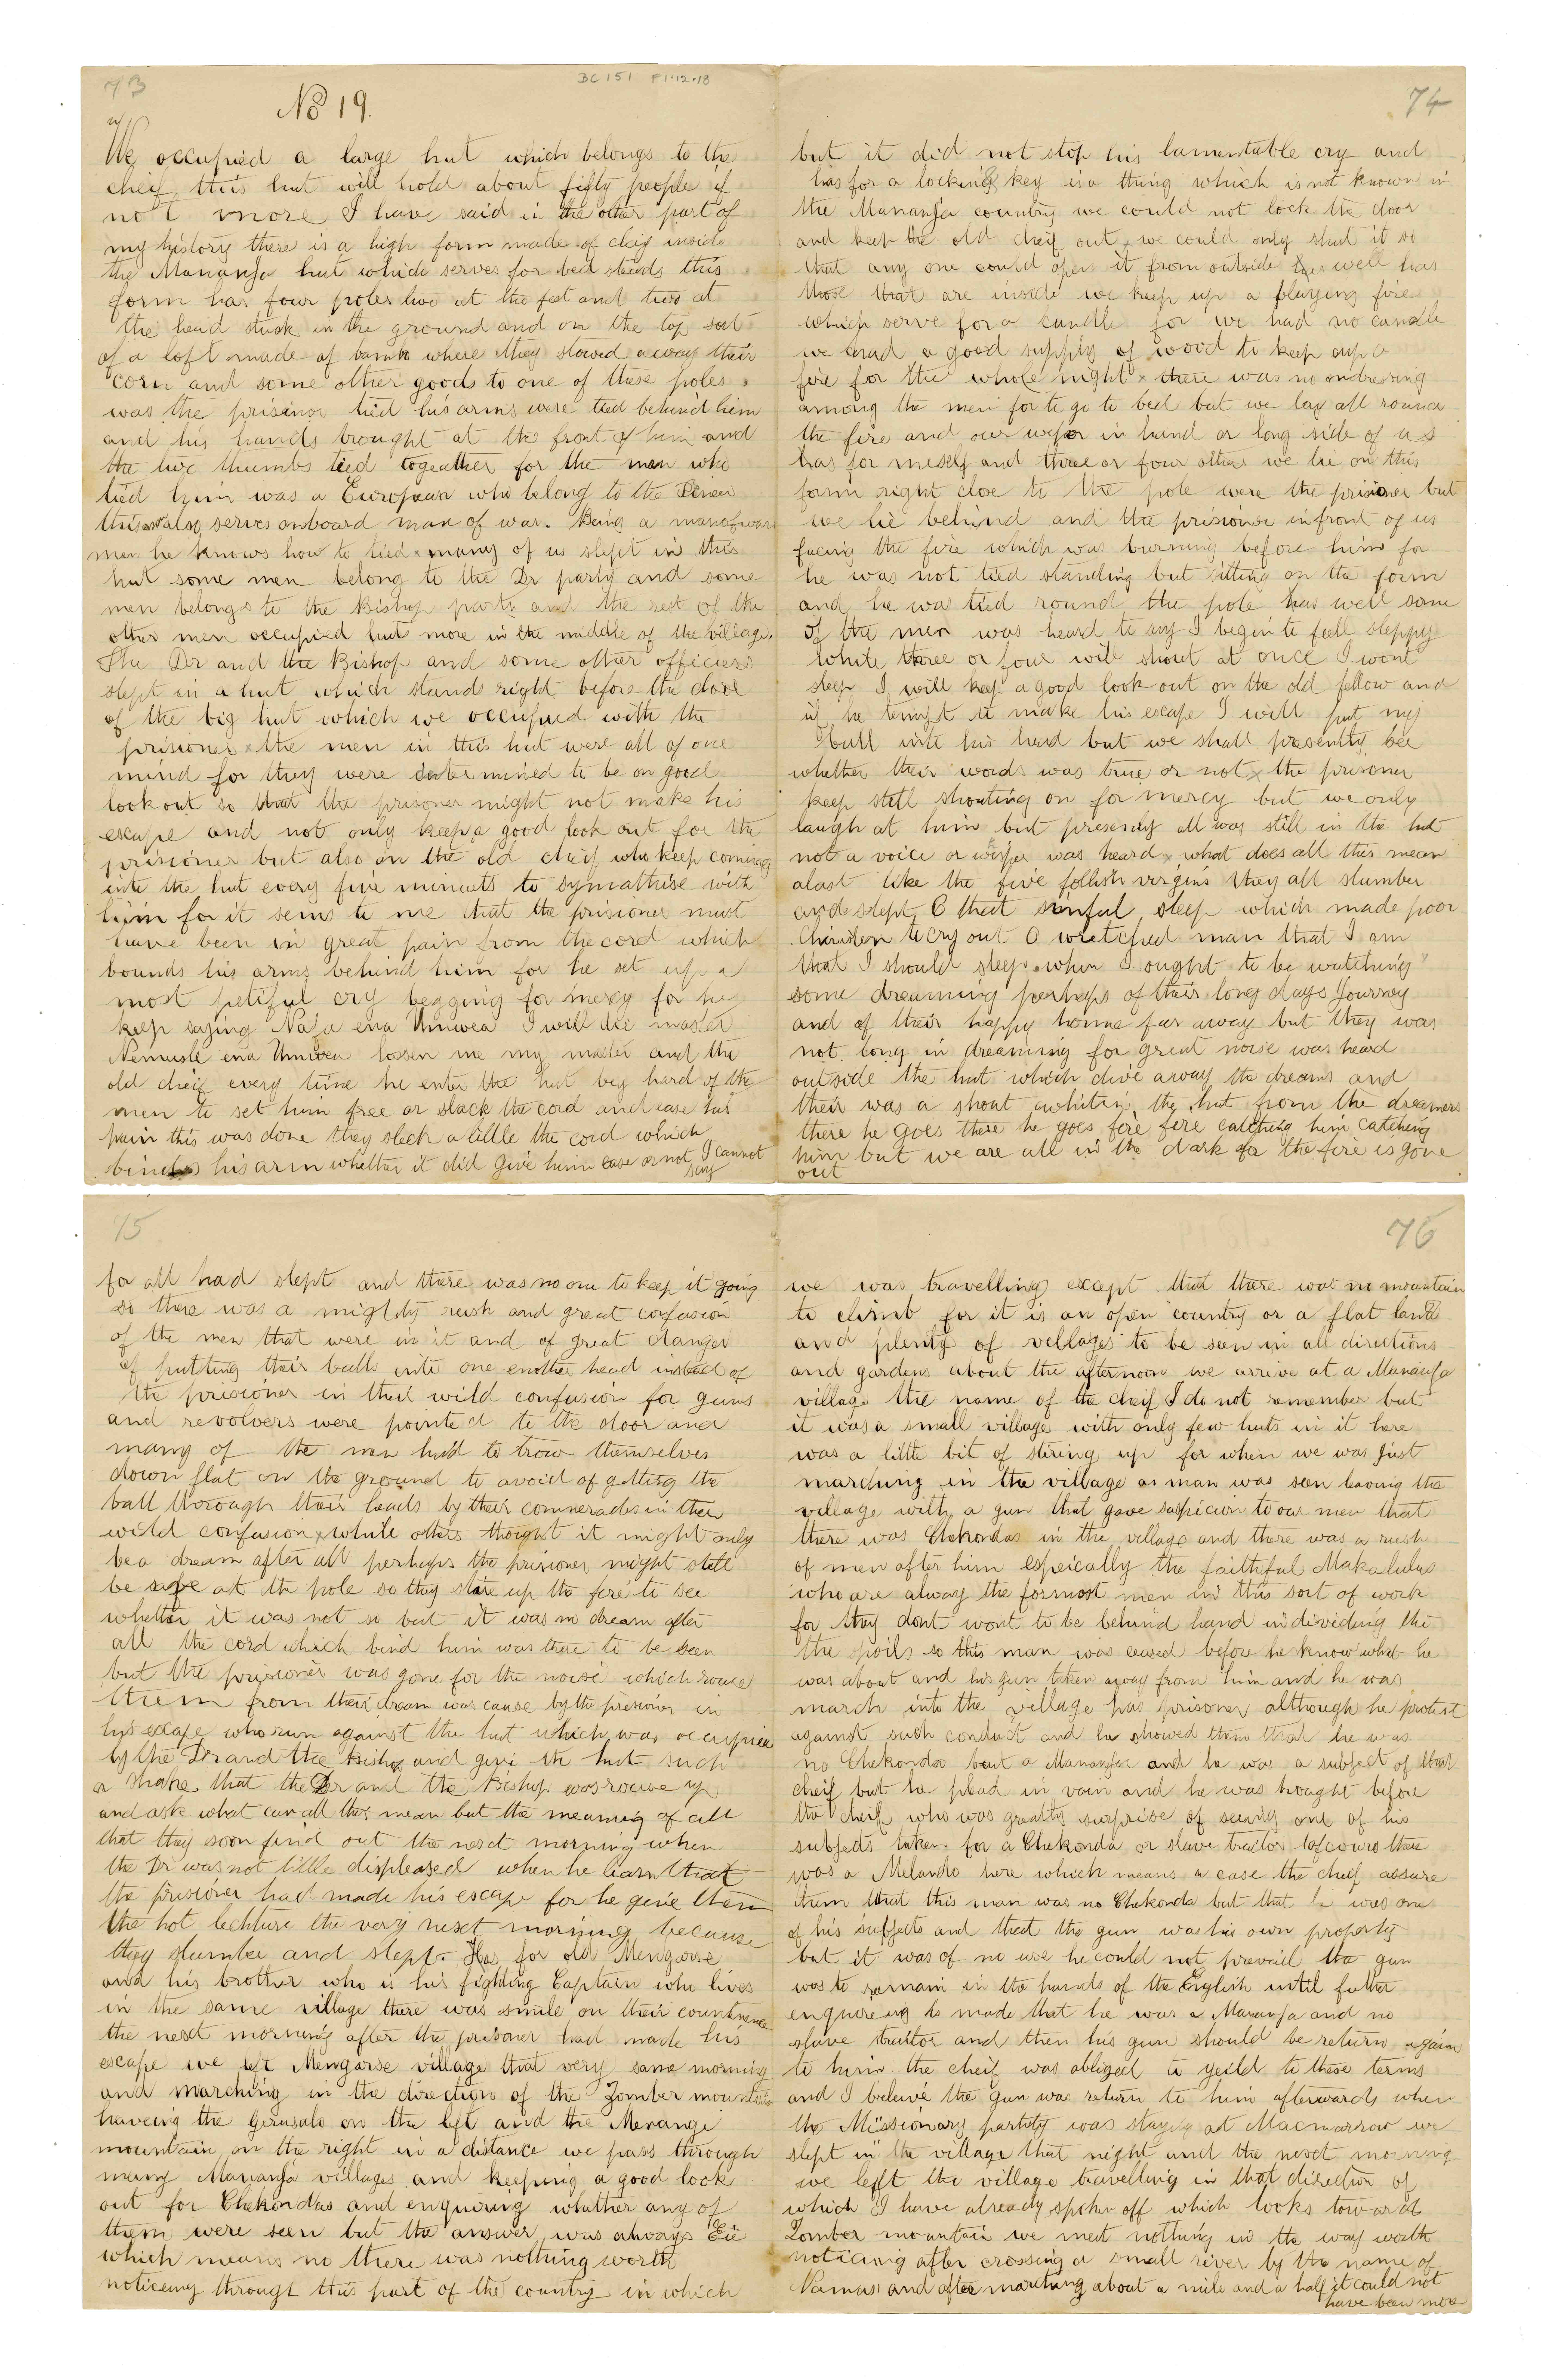 73
BC 151 F1.12.18
No 19.
We occupied a large hut which belongs to the
cheif this hut will hold about fifty people if
not more I have said in the other part of
my history there is a high form made of clay inside
the Mananja hut which serves for bed steads this
form has four poles two at the feet and two at
the head stuck in the ground and on the top sort
of a loft made of bambo where they stowed away their
corn and some other goods to one of these poles
was the prisinor tied his arms were tied behind him
and his hands brought at the front of him and
the two thumbs tied togeather for the man who
tied him was a European who belong to the
this also serves onboard man of war. Being a manofwar
man he knows how to tied x many of us slept in this
hut some men belong to the Dr party and some
men belongs to the Bishop party and the rest of the
other men occupied hut more in the middle of the village.
The Dr and the Bishop and some other officiers
slept in a hut which stands right before the door
of the big hut which we occupied with the
prisioner x the men in this hut were all of one
mind for they were determined to be on good
look out so that the prisoner might not make his
escape and not only keep a good look out for the
prisioner but also on the old cheif who keep coming
into the hut every five minuets to symathise with
him for it sems to me that the prisioner must
have been in great pain from the cord which
bounds his arms behind him for he set up a
most petiful cry begging for mercy for he
keep saying Nafa ena Umwea I will die master
Nemusle ena Umwea lossen me my master and the
old cheif every time he enter the hut beg hard of the
men to set him free or slack the cord and ease his
pain this was done they sleck a little the cord which
binds his arm whether it did give him ease or not I cannot
say
74
but it did not stop his lamentable cry and
has for a locking key is a thing which is not known in
the Mananja country we could not lock the door
and keep the old cheif out x we could only shut it so
that any one could open it from outside has well has
those that are inside we keep up a blaying fire
which serve for a candle for we had no candle
we had a good supply of wood to keep up a
fire for the whole night x there was no ondressing
among the men for to go to bed but we lay all round
the fire and our wepor in hand or long side of us
has for meself and three or four others we lie on this
form right close to the pole were the prisioner but
we lie behind and the prisioner infront of us
facing the fire which was burning before him for
he was not tied standing but sitting on the form
and he was tied round the pole has well some
of the men was heard to say I begin to fell sleppy
while three or four will shout at once I wont
sleep I will keep a good look out on the old fellow and
if he tempt to make his escape I will put my
ball into his head but we shall presently see
whether their words was true or not x the prisoner
keep still shouting on for mercy but we only
laugh at him but presenly all was still in the hut
not a voice or wisper was heard x what does all this mean
alast like the five follish virgins they all slumber
and slept O that sinful sleep which made poor
Christen to cry out O wretched man that I am
that I should sleep when I ought to be watching
some dreaming perhaps of their long days Journey
and of their happy home far away but they was
not long in dreaming for great noise was heard
outside the hut which dive away the dreams and
their was a shout whitin the hut from the dreamers
there he goes there he goes fire fire catching him catching
him but we are all in the dark for the fire is gone
out
75
for all had slept and there was no one to keep it going
so there was a mighty rush and great confusion
of the men that were in it and of great danger
of putting their balls into one another head instead of
the prisioner in their wild confusion for guns
and revolvers were pointed to the door and
many of the men had to trow themselves
down flat on the ground to avoid of getting the
ball thorough their heads by their commerades in their
wild confusion x while others thought it might only
be a dream after all perhaps the prisioner might still
be safe at the pole so they stire up the fire to see
whether it was not so but it was no dream after
all the cord which bind him was there to be seen
but the prisioner was gone for the noise which rouse
them from their dream was cause by the prisioner in
his escape who run against the hut which was occupied
by the Dr and the Bishop and give the hut such
a shake that the Dr and the Bishop was rouse up
and ask what can all this mean but the meaning of all
that they soon find out the next morning when
the Dr was not little displeased when he learn that
the prisioner had made his escape for he give them
the hot lechture the very next morning because
they slumber and slept. Has for old Mengorse
and his brother who is his fighting Captain who lives
in the same village there was smile on their countinence
the next morning after the prisoner had made his
escape we left Mengorse village that very same morning
and marching in the direction of the Zomber mountain
haveing the Gerusalo on the left and the Menange
mountain on the right in a distance we pass through
many Mananja villages and keeping a good look
out for Chekondas and enquiring whather any of
them were seen but the answer was always Eie
which means no there was nothing worth
noticeing through this part of the country in which
76
we was travelling except that there was no mountain
to climb for it is an open country or a flat land
and plenty of villages to be seen in all directions
and gardens about the afternoon we arrive at a Mananja
village the name of the cheif I do not remember but
it was a small village with only few huts in it here
was a little bit of stiring up for when we was just
marching in the village a man was seen leaving the
village with a gun that gave suspicion to our men that
there was Chekondas in the village and there was a rush
of men after him espeically the faithful Makalulus
who are alway the formost men in this sort of work
for they dont wont to be behind hand in divieding the
the spoils so this man was ceased before he know what he
was about and his gun taken away from him and he was
march into the village has prisoner although he protest
against such conduct and he showed them that he was
no Chekonda but a Mananja and he was a subject of that
cheif but he plead in vain and he was brought before
the cheif who was greatly surprise of seeing one of his
subjects taken for a Chekonda or slave traitor ofcours there
was a Melando here which means a case the cheif assure
them that this man was no Chekonda but that he was one
of his subjects and that the gun was his own property
but it was of no use he could not prevail the gun
was to remain in the hands of the English until futher
enquireing is made that he was a Mananja and no
slave traitor and then his gun should be return again
to him the cheif was obliged to yeild to these terms
and I beleive the gun was return to him afterwards when
the Missionary partity was staying at Macmarrow we
slept in the village that night and the next morning
we left the village travelling in that direction of
which I have already spoken off which looks toward
Zomber mountain we meet nothing in the way worth
noticing after crossing a small river by the name of
Namasi and after marching about a mile and a half it could not
have been more